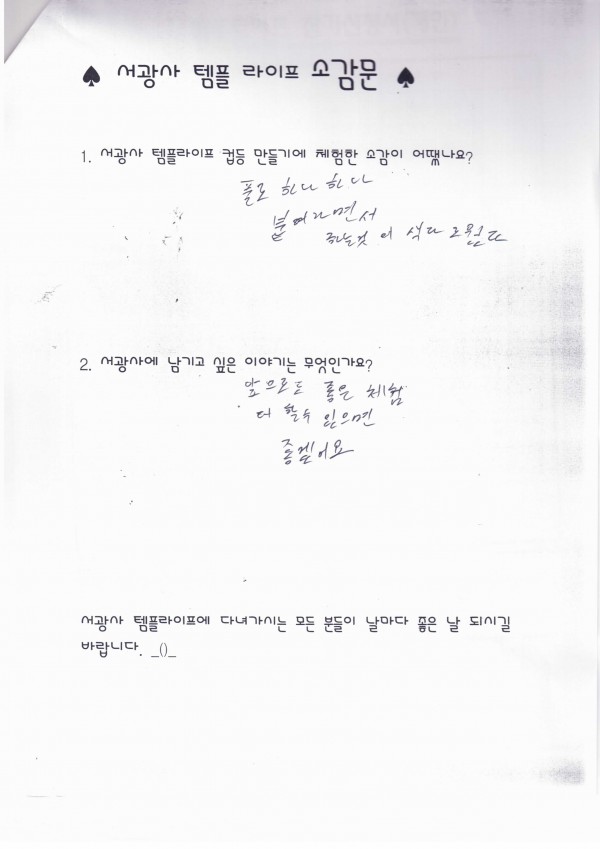 ♠ 서광사 템플 라이프 소감문 ♠
1. 서광사 템플라이프 컵등 만들기에 체험한 소감이 어땠나요?
풀로 하나 하나
붙여라면서
하는것 이 색다로웠다
2. 서광사에 남기고 싶은 이야기는 무엇인가요?
앞으로도 좋은 체험
더 할수 있으면
좋겠어요
서광사 템플라이프에 다녀가시는 모든 분들이 날마다 좋은 날 되시길
바랍니다. _()_